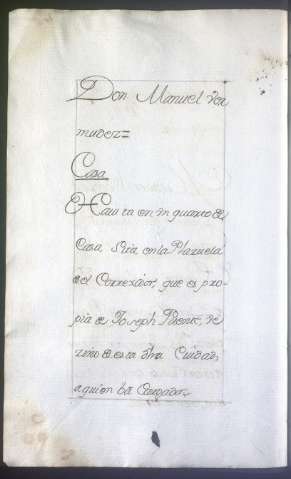 Don Manuel Ver
mudez=
Casa
Havita en un quarto de
Casa, Sita en la Plazuela
del Correxidor, que es pro-
pia de Joseph Ponze, ve
zino de esta dha Ciudad,
a quien ba Cargada,